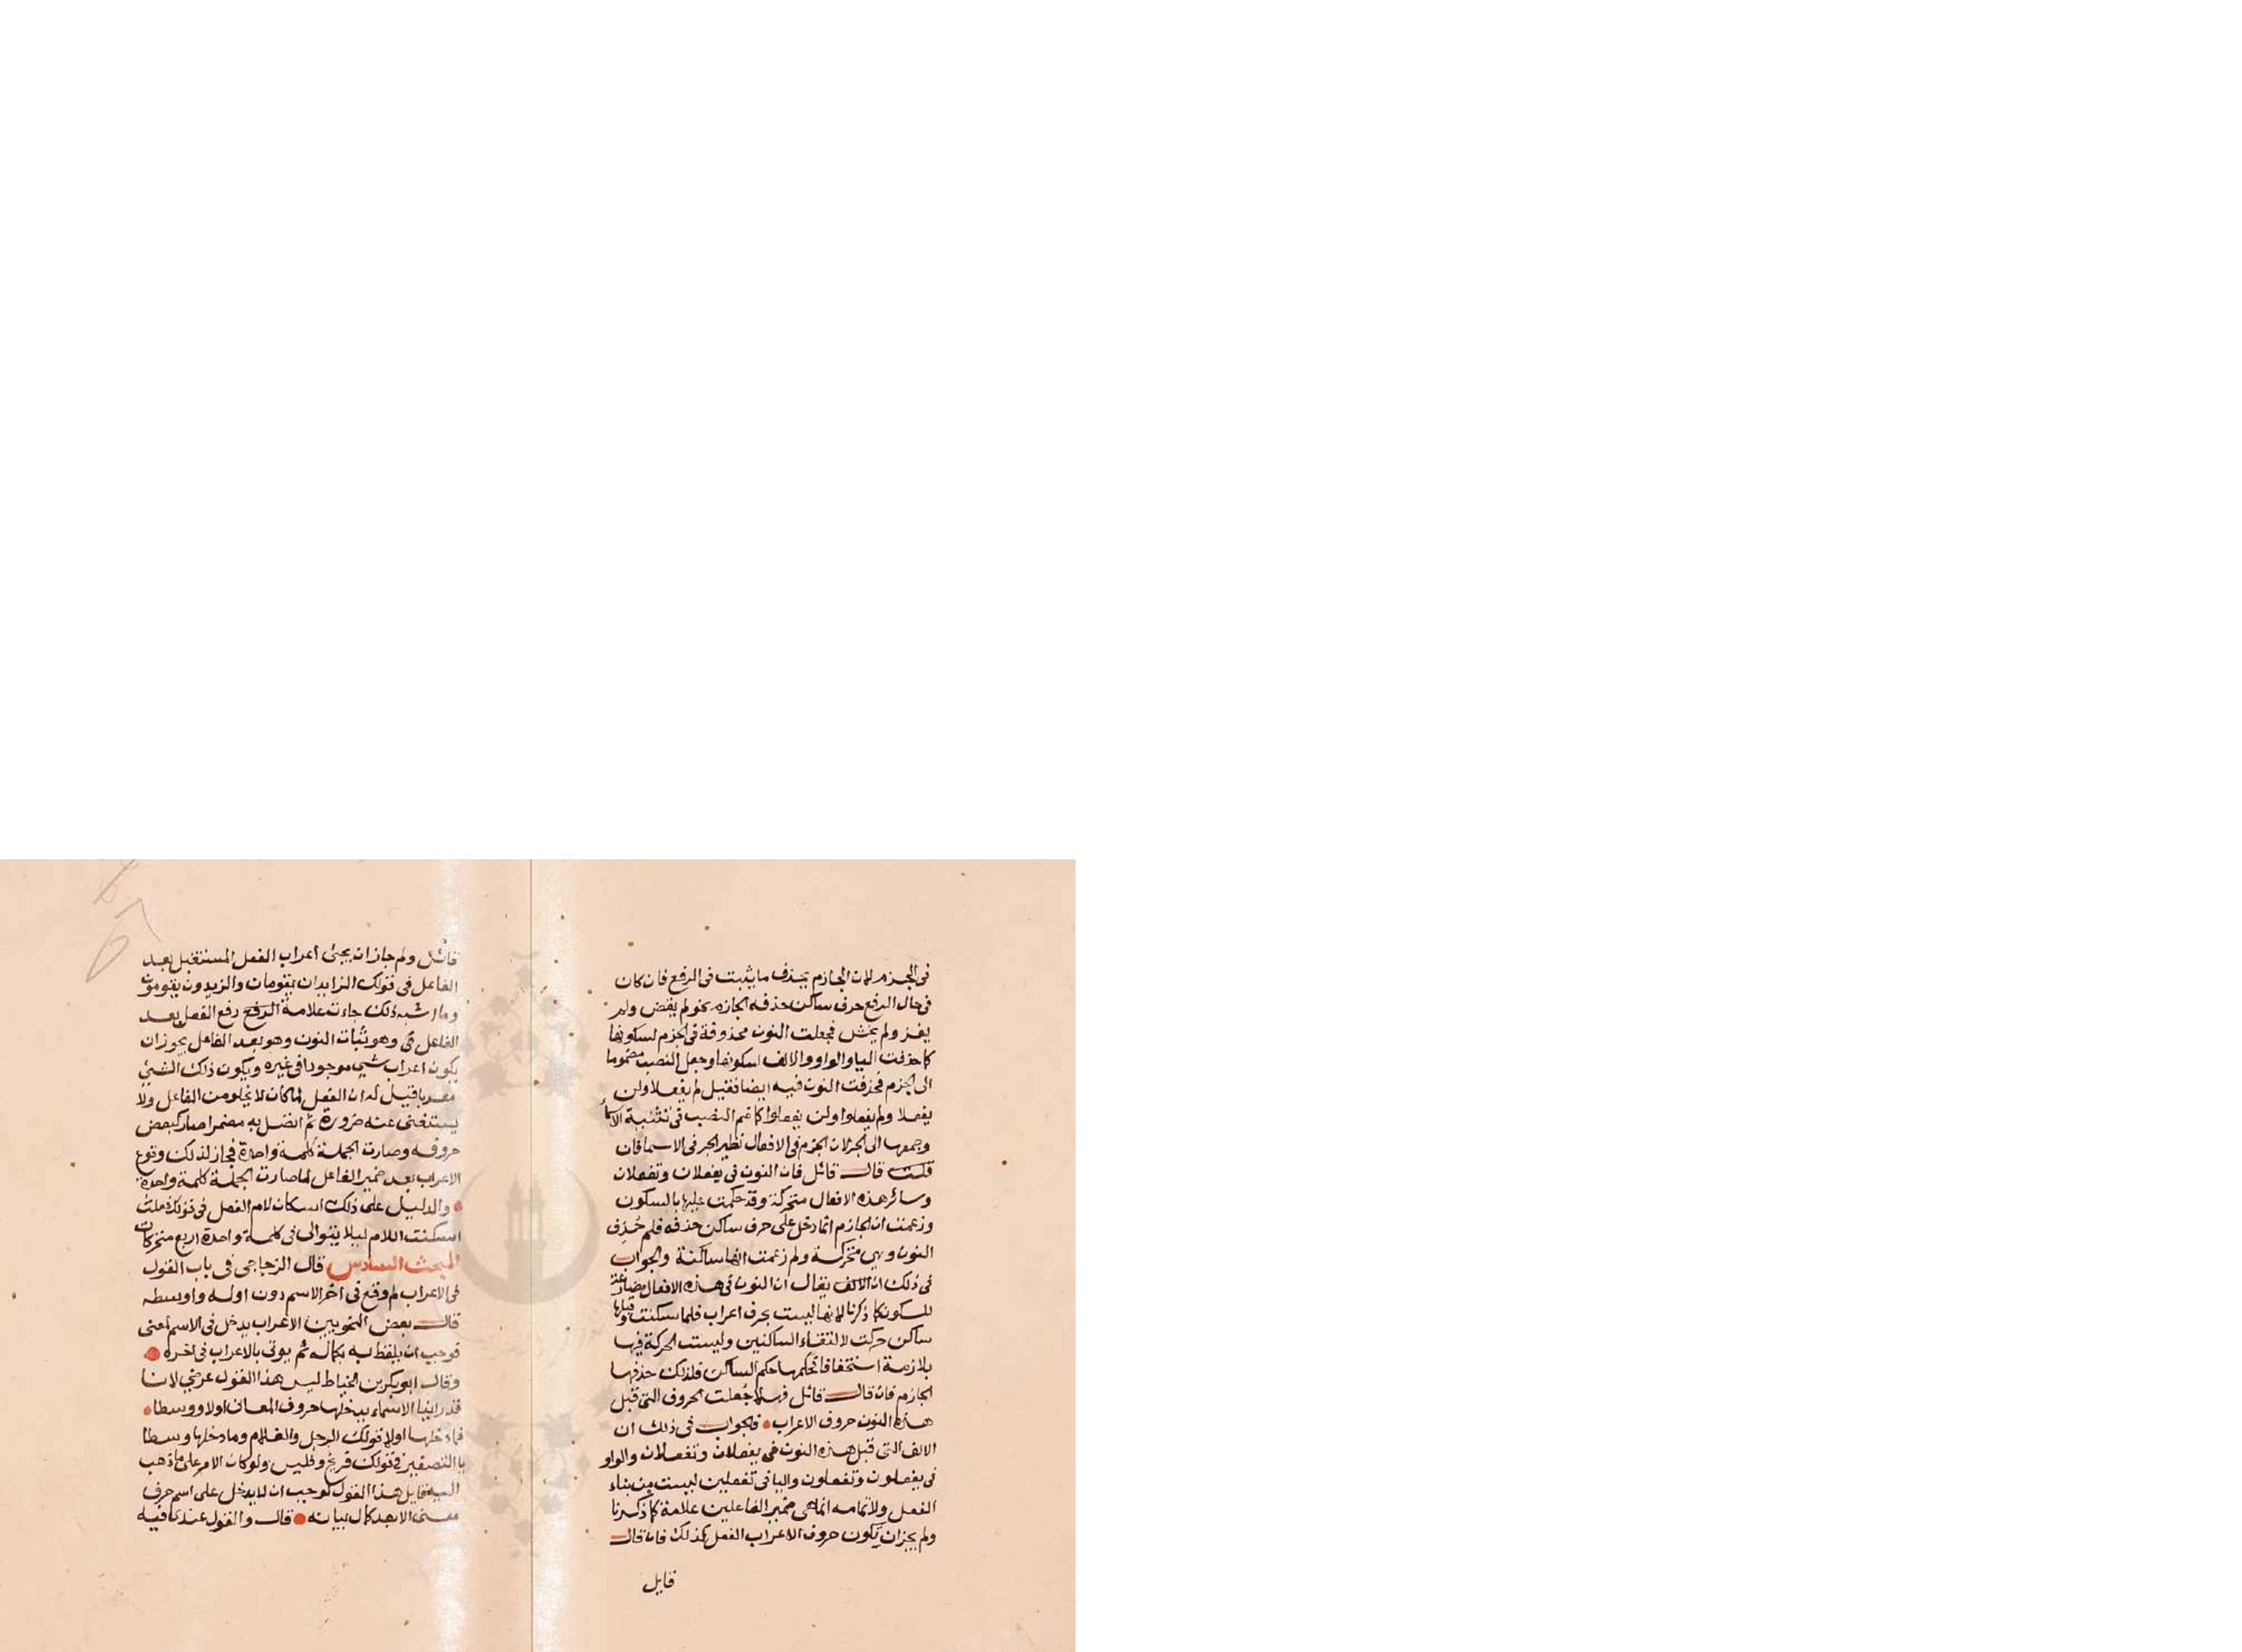 فى الجزم لان الجازم يحذف ما يثبت فى الرفع فان كان
فى حال الرفع حرف ساكن حذفه الجازم نحو لم يقض ولم
يغز ولم يخش فجعلت النون محذوفة فى الجزم لسكونها
كما حذفت اليا والواو والالف لسكونها وجعل النصب مضموما
الى الجزم فحذفت النون فيه ايضا فقيل لم يفعلا ولن
يفعلا ولم يفعلوا ولن يفعلوا كما ضم النصب فى تثنية الاسماء
وجمعها الى الجر لان الجزم فى الافعال نظير الجر فى الاسما فان
قلت قال قائل فان النون فى يفعلان وتفعلان
وسائر هذه الافعال متحركة وقد حكمت عليها بالسكون
وزعمت ان الجازم انما دخل على حرف ساكن حذفه فلم حذف
النون وهى متحركة ولم زعمت انها ساكنة والجواب
فى ذلك ان يقال ان النون فى هذه الافعال مضارعة
للسكون كما ذكرنا لانها ليست بحرف اعراب فلما سكنت وقبلها
ساكن حركت لالتقاء الساكنين وليست الحركة فيها
بلازمة استخفافا فحكمها حكم الساكن فلذلك حذفها
الجازم فان قال قائل فهلا جعلت الحروف التى قبل
هذه النون حروف الاعراب فالجواب فى ذلك ان
الالف التى قبل هذه النون فى يفعلان وتفعلان والواو
فى يفعلون وتفعلون واليا فى تفعلين ليست من بناء
الفعل ولا تمامه انما هى ضمير الفاعلين علامة كما ذكرنا
ولم يجز ان تكون حروف الاعراب الفعل كذلك فان قال
قايل
قائل ولم جاز ان يجئ اعراب الفعل المستقبل بعد
الفاعل فى قولك الزايدان يقومان والزيدون يقومون
وما اشبه ذلك جاءت علامة الرفع رفع الفعل بعد
الفاعل فى وهو ثبات النون وهو بعد الفاعل يجوز ان
يكون اعراب شئ موجودا فى غيره ويكون ذلك الشئ
معربا قيل له ان الفعل لما كان لا يخلو من الفاعل ولا
يستغنى عنه ضرورة ثم اتصل به مضمرا صار كبعض
حروفه وصارت الجملة كلمة واحدة فجاز لذلك وقوع
الاعراب بعد ضمير الفاعل لما صارت الجملة كلمة واحدة
والدليل على ذلك اسكان لام الفعل فى قولك فعلت
اسكنت اللام ليلا يتوالى فى كلمة واحدة اربع متحركات
المبحث السادس قال الزجاجى فى باب القول
فى الاعراب لم وقع فى اخر الاسم دون اوله واوسطه
قال بعض النحويين الاعراب يدخل فى الاسم لمعنى
فوجب ان يلفظ به بكماله ثم يوتى بالاعراب فى اخره
وقال ابو بكر بن الخياط ليس هذا القول عرضي لانا
قد راينا الاسماء يدخلها حروف المعانى اولا ووسطا
فما دخلها اولا قولك الرجل والغلام وما دخلها وسطا
يا التصغير فى قولك فريخ وفليس ولو كان الامر على ما ذهب
اليه قايل هذا القول لوجب ان لا يدخل على اسم حرف
معنى الا بعد كمال بيانه قال والقول عندنا فيه